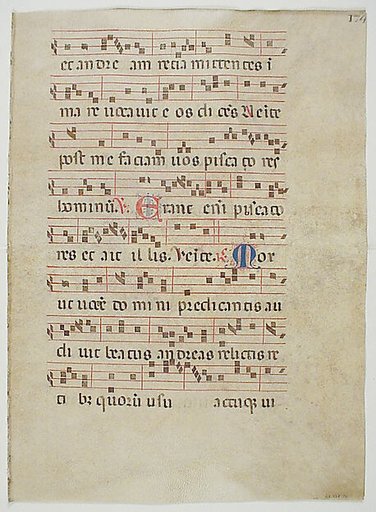 et andre am retia mittentes i
ma re vocavit e os di cēs Venite
post me faciam vos pisca to res
hominū. V. Erant eni pisca to
res et ait il lis. Venite. Mox
ut vocē do mi ni predicantis au
di vit beatus andreas relictis re
ti bꝫ quorū usu actuqꝫ vi